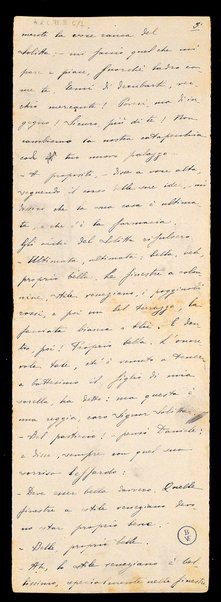 3.
mente la voce rauca del
Solitta — mi faccio quel che mi
pare e piace, fuorchè ladro co-
me te. Tieni di disubarti, vec-
chio mercante! Povero, ma d'in-
gegno! Sicuro, più di te! Non
cambiamo la nostra catapecchia
col tuo novo palazzo —
— A proposito, — disse a voce alta
seguendo il corso delle sue idee, mi
dissero che la sua casa è ultima-
ta, e che c'è la farmacia.
Gli occhi del Solitta risplsero.
— Ultimata, ultimata! Bella, veh,
proprio bella. Ha finestre a colon-
nine, stile veneziano, poggiuoli
rossi, e poi un bel terrazzo, la
facciata bianca e bleu. E den-
tro poi! Proprio bella. L'onore-
vole tale, ch'è venuto a tenere
a battesimo il figlio di mia
sorella, ha detto: ma questa è
una reggia, caro signor Solitta
— Bel pasticcio! — pensò Daniele;
e disse, sempre con quel suo
sorriso beffardo:
— Deve esser bella davvero. Quelle
finestre a stile veneziano devo-
no star proprio bene.
— Belle, proprio belle.
Ah, lo stile veneziano è bel-
lissimo, specialmente nelle finestre